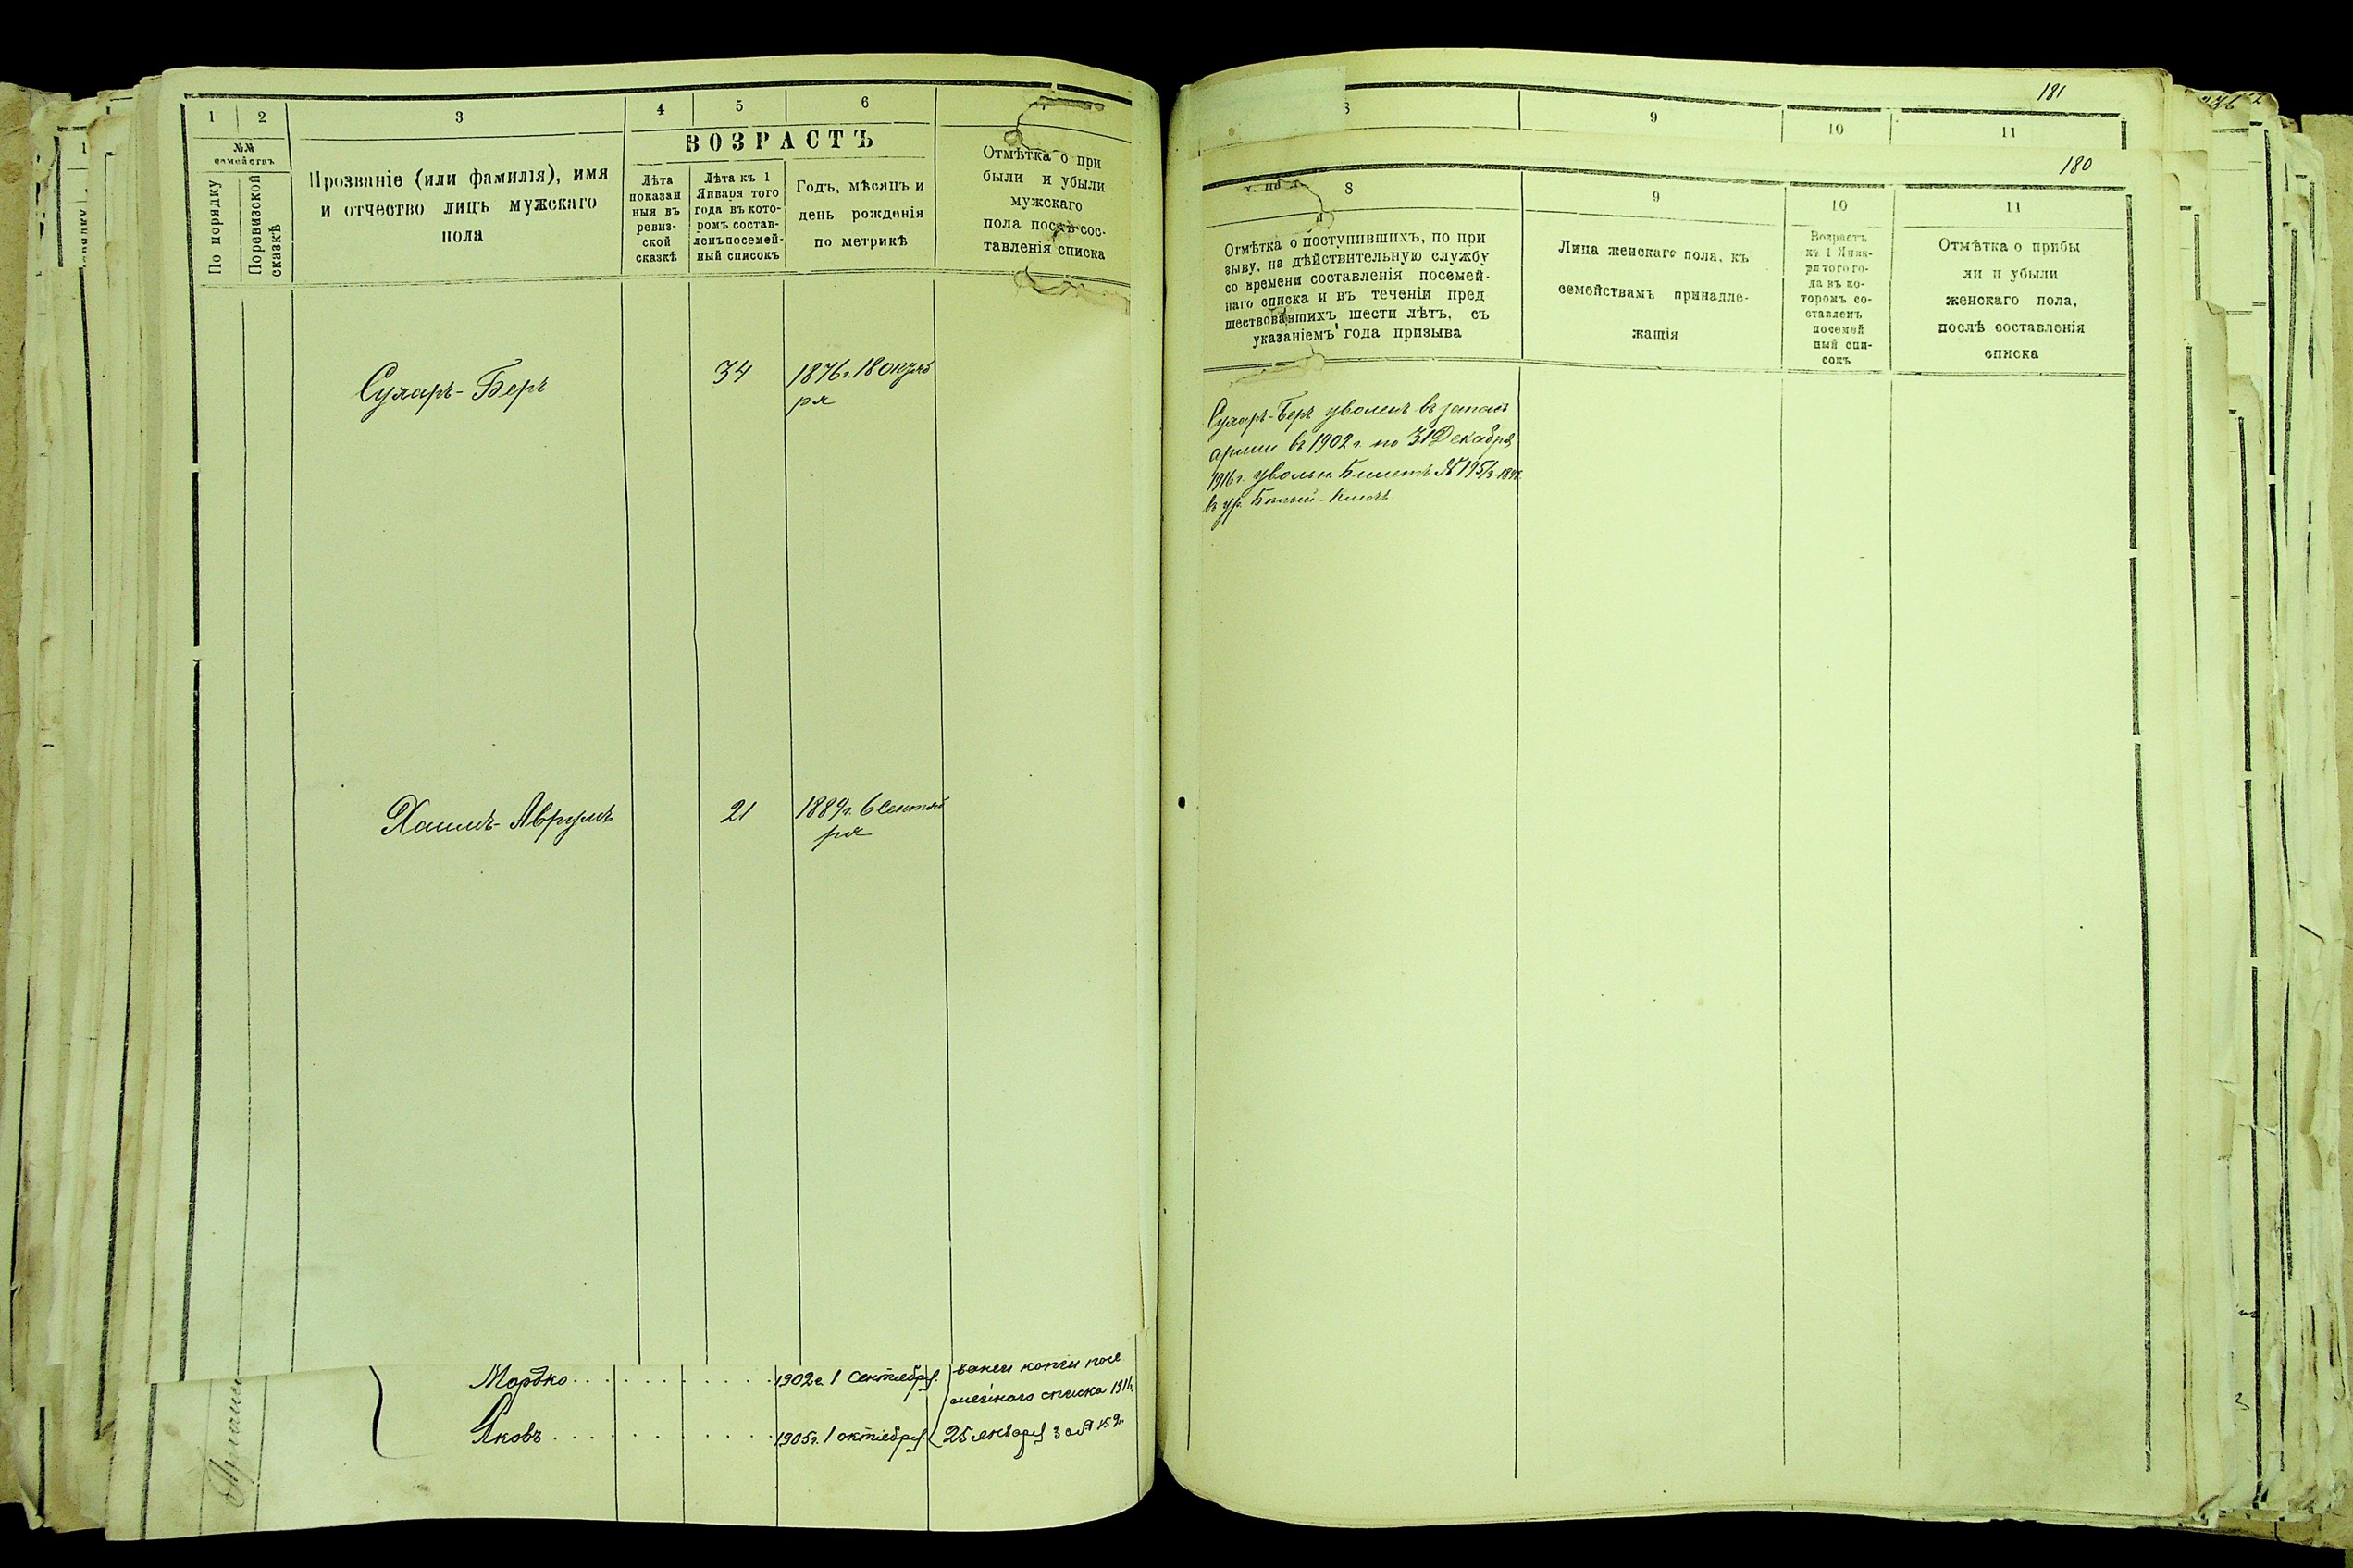 1 2 3 4 5 6
№№ семействъ
По порядку
Поревизской сказкѣ
Прозваніе (или фамилія), имя
и отчество лицъ мужскаго
пола
ВОЗРАСТЪ
Лѣта
показан
ныя въ
ревиз-
ской
сказкѣ
Лѣта къ 1
Января того
года въ кото-
ромъ состав-
ленъ посемей-
ный списокъ
Годъ, мѣсяцъ и
день рожденія
по метрикѣ
Отмѣтка о при
были и убыли
мужскаго
пола послѣ сос-
тавленія списка
Сухаръ-Беръ 34 1876 г. 18 октяб
ря
Хаимъ-Аврумъ 21 1889 г. 6 сентяб
ря
Мордко 1902 г. 1 сентября.
Яковъ 1905 г. 1 октября.
копіи посе
мейнаго списка 1916
25 января 3 159.
181
9 10 11
180
8 9 10 11
Отмѣтка о поступившихъ, по при
зыву, на дѣйствительную службу
со времени составленія посемей-
наго списка и въ теченіи пред
шествовавшихъ шести лѣтъ, съ
указаніемъ года призыва
Лица женскаго пола, къ
семействамъ принадле-
жащія
Возрастъ
къ 1 Янва-
ря того го-
да въ ко-
торомъ со-
ставленъ
посемей
ный спи-
сокъ
Отмѣтка о прибы
ли и убыли
женскаго пола,
послѣ составленія
списка
Сухаръ-Беръ уволенъ въ запасъ
арміи въ 1902 г. по 31 Декабря
1916 г. увольн. Билетъ №
въ ур. Бѣлый-Ключъ.